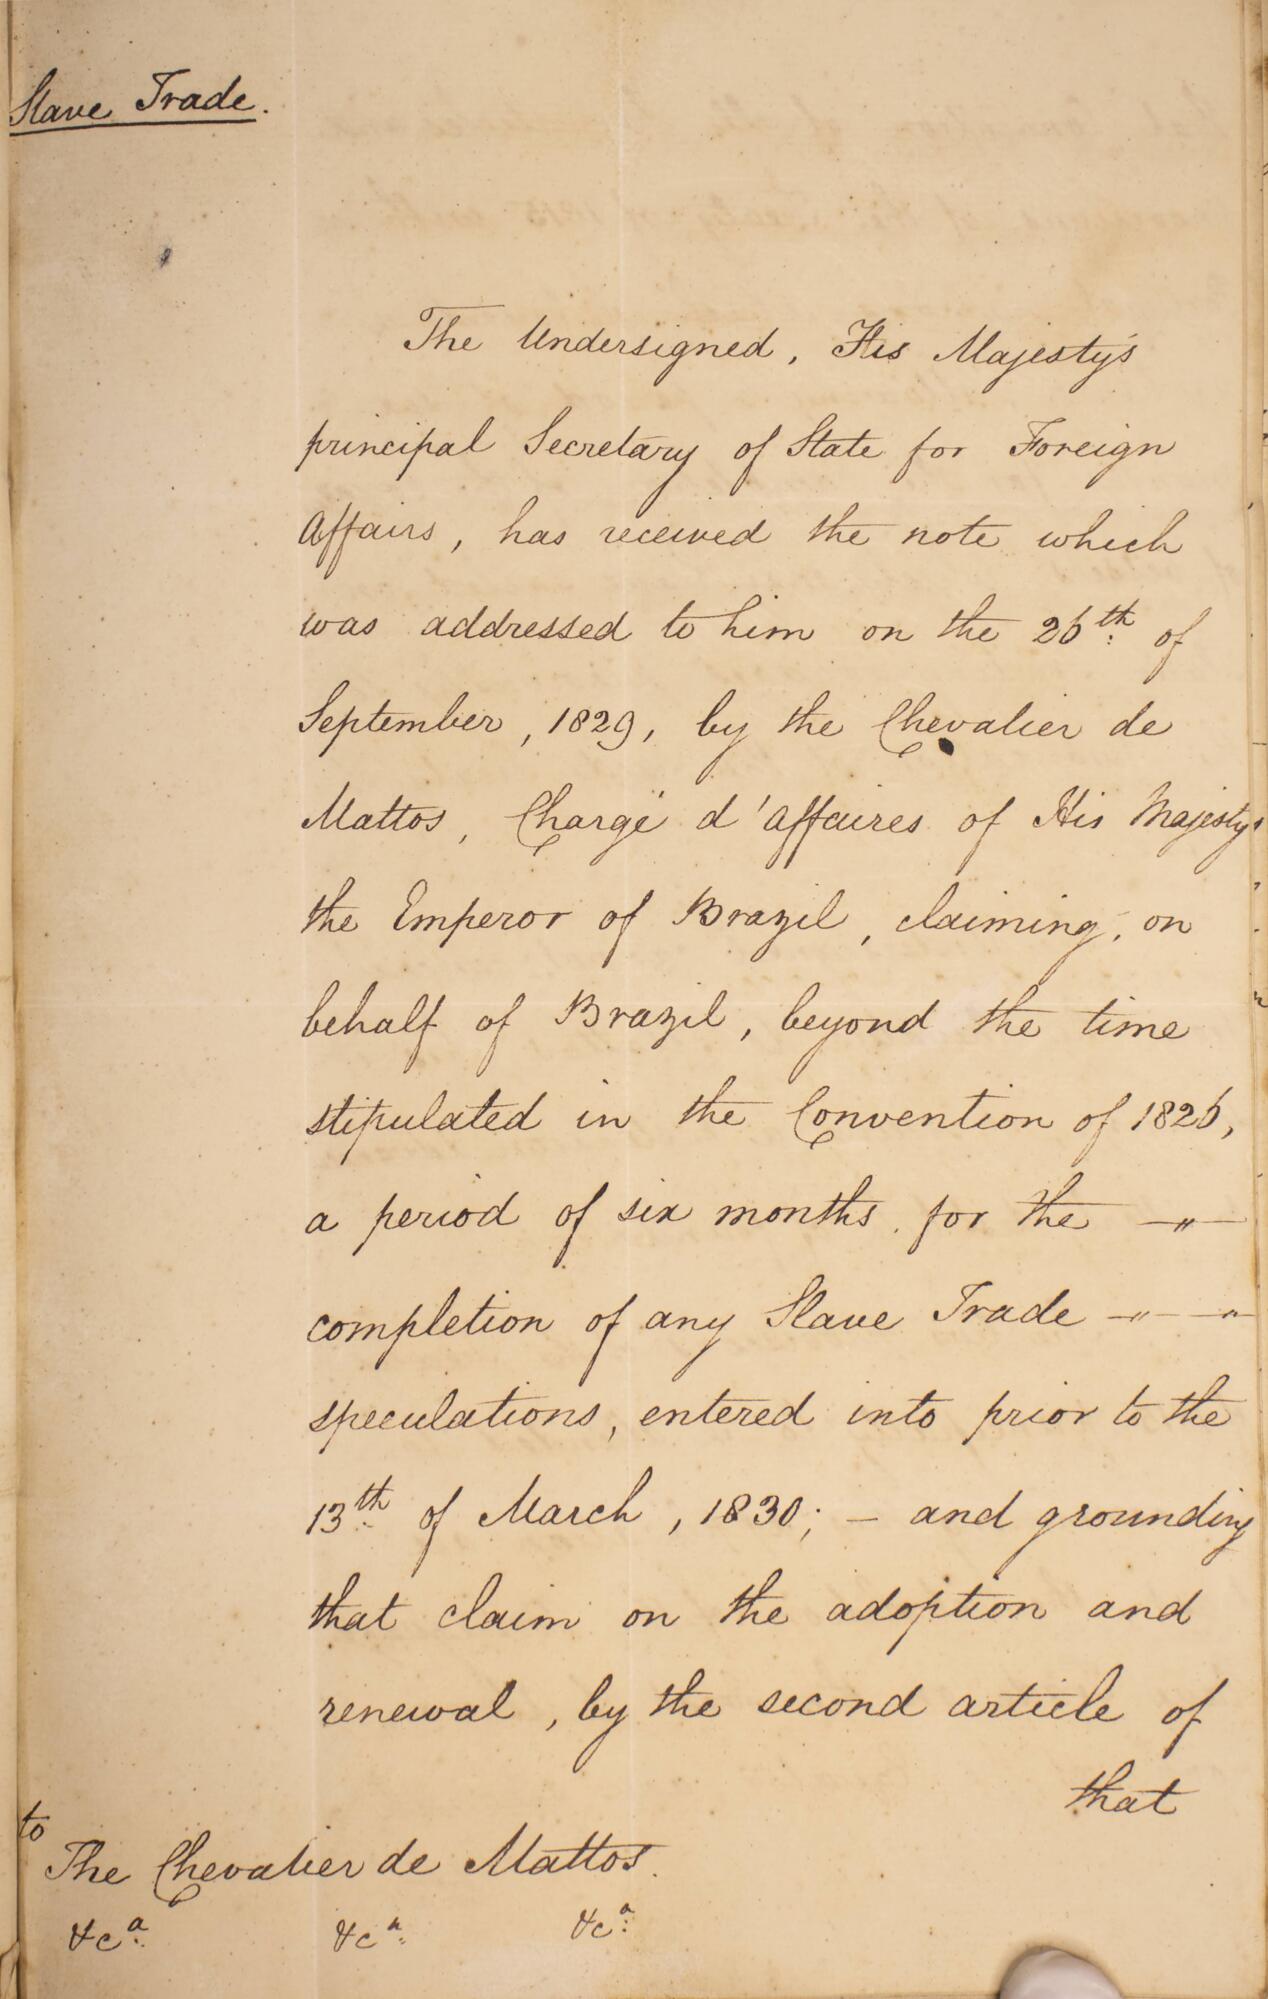 Slave Trade.
The Undersigned, His Majesty's
principal Secretary of State for Foreign
Affairs, has received the note which
was addressed to him on the 26th. of
September, 1829, by the Chevalier de
Mattos, Chargé d'Affaires of His Majesty
the Emperor of Brazil, claiming, on
behalf of Brazil, beyond the time
stipulated in the Convention of 1826,
a period of six months for the —"—
completion of any Slave Trade —"—"—
speculations, entered into prior to the
13th. of March, 1830; — and grounding
that claim on the adoption and
renewal, by the second article of
that
to
The Chevalier de Mattos.
&ca. &ca. &ca.